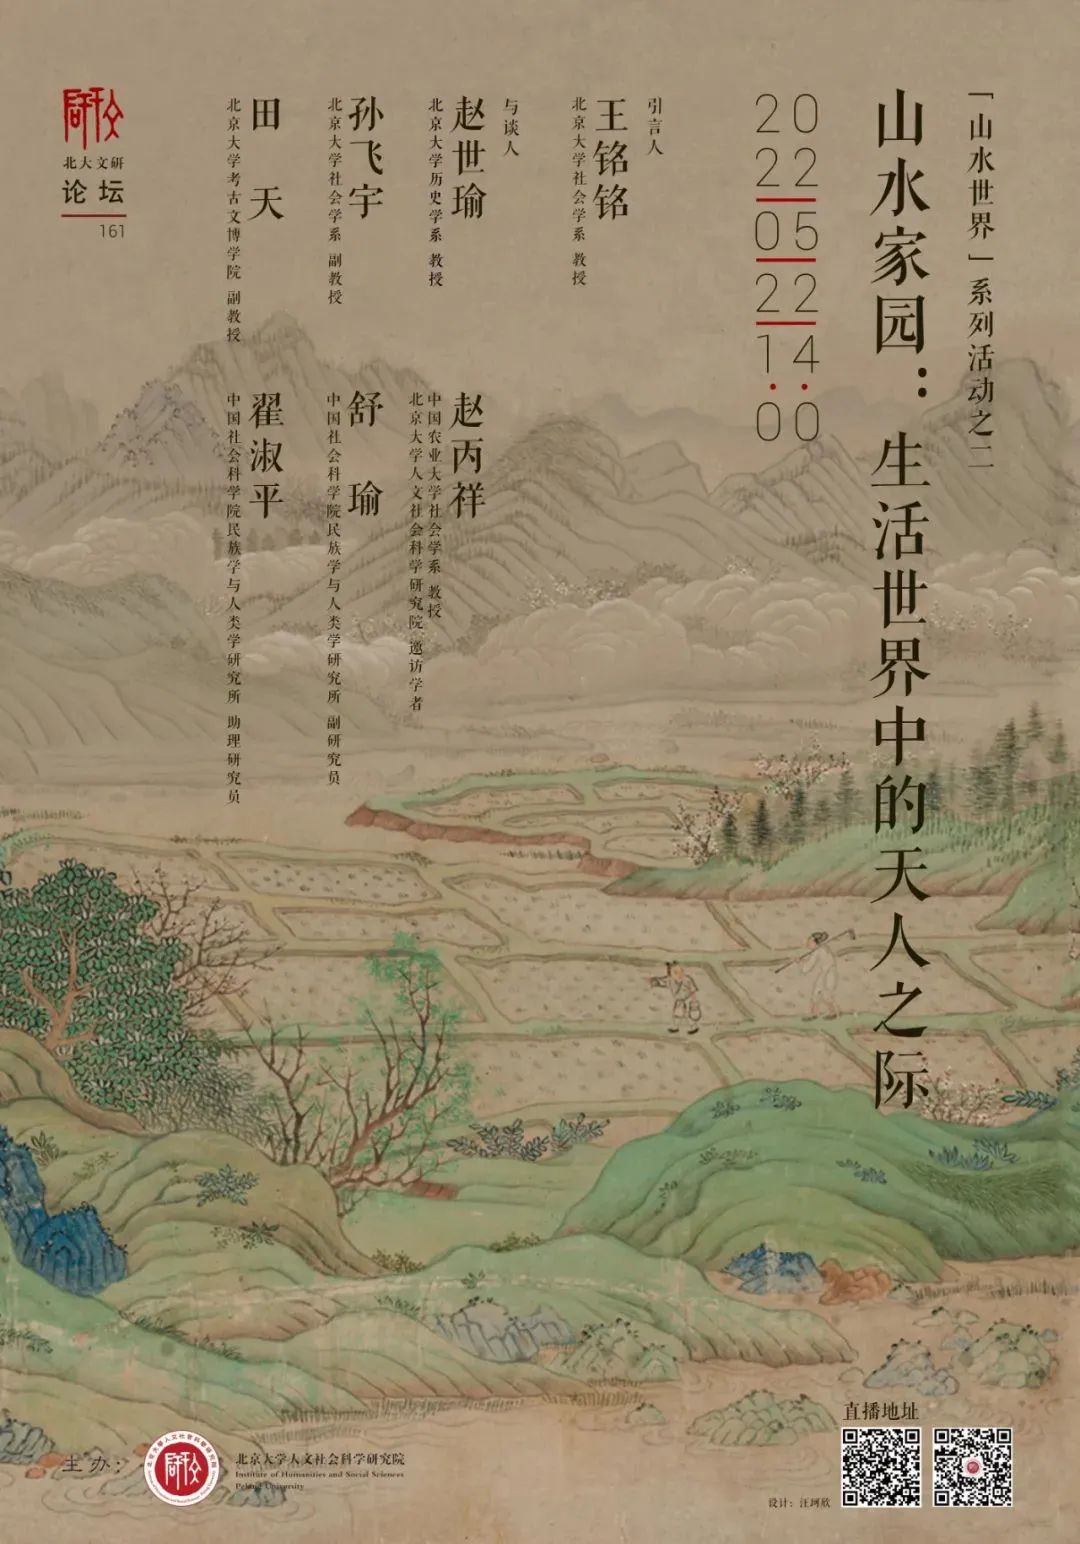 「山水世界」系列活动之二
山水家园：生活世界中的天人之际
2022
05
22
14:00
引言人
王铭铭
北京大学社会学系 教授
与谈人
赵世瑜
北京大学历史学系 教授
孙飞宇
北京大学社会学系 副教授
田天
北京大学考古文博学院 副教授
赵丙祥
中国农业大学社会学系 教授
北京大学人文社会科学研究院 邀访学者
舒瑜
中国社会科学院民族学与人类学研究所 副研究员
翟淑平
中国社会科学院民族学与人类学研究所 助理研究员
北大文研
论坛
161
直播地址
设计：汪珂欣
主办：
北京大学人文社会科学研究院
Institute of Humanities and Social Sciences
Peking University